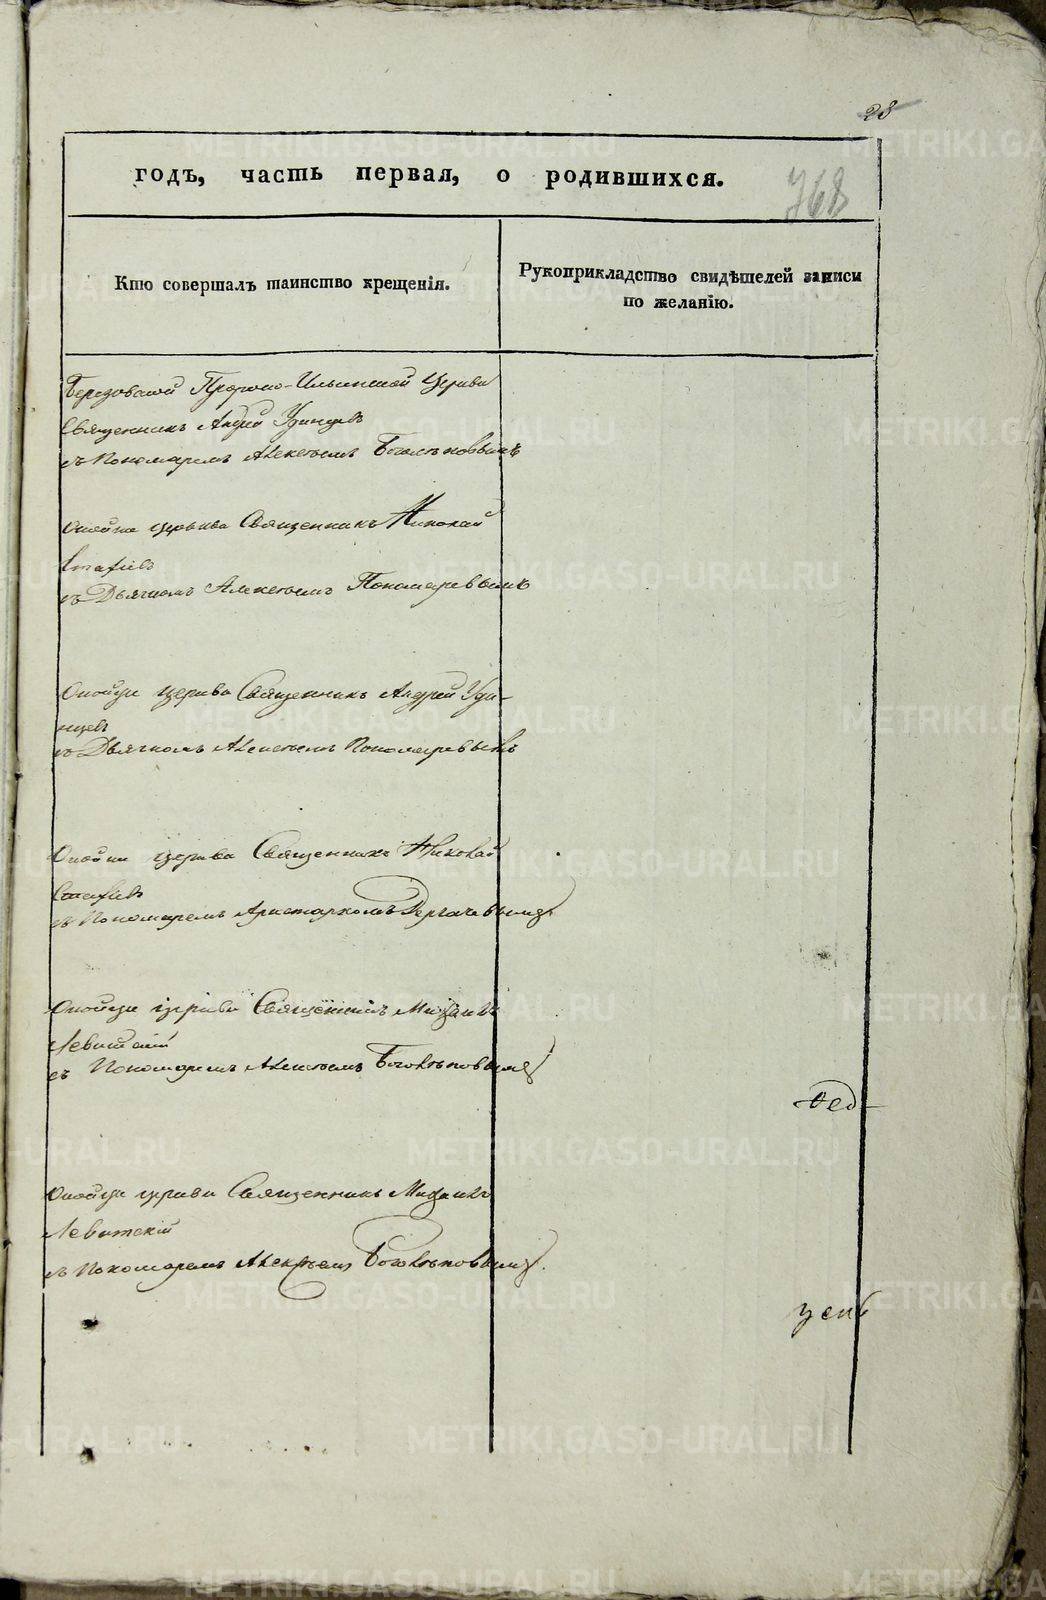 28
годъ, часть первая, о родившихся.
768
Кто совершалъ таинство крещенія.
Рукоприкладство свидѣтелей записи
по желанію.
Березовской Пророко-Ильинской Церкви
Священникъ Андрей Удинцевъ
съ Пономаремъ Алексѣемъ Боголѣповымъ
Оной же церкви Священникъ Николай
съ Дьячкомъ Алексѣемъ Пономаревымъ
Оной же церкви Священникъ Андрей Уди-
нцевъ
съ Дьячкомъ Алексѣемъ Пономаревымъ
Оной же церкви Священникъ Николай
съ Пономаремъ Аристархомъ Дергачевымъ
Оной же церкви Священникъ Михаилъ
Левитскій
съ Пономаремъ Алексѣемъ Боголѣповымъ
Оной же церкви Священникъ Михаилъ
Левитскій
съ Пономаремъ Алексѣемъ Боголѣповымъ.
METRIKI.GASO-URAL.RU